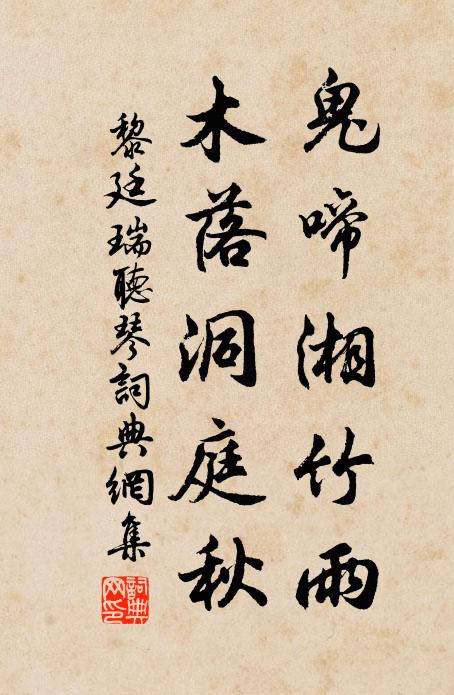 鬼啼湘竹雨
木落洞庭秋
黎廷瑞聽琴詞典網集
詞典網印